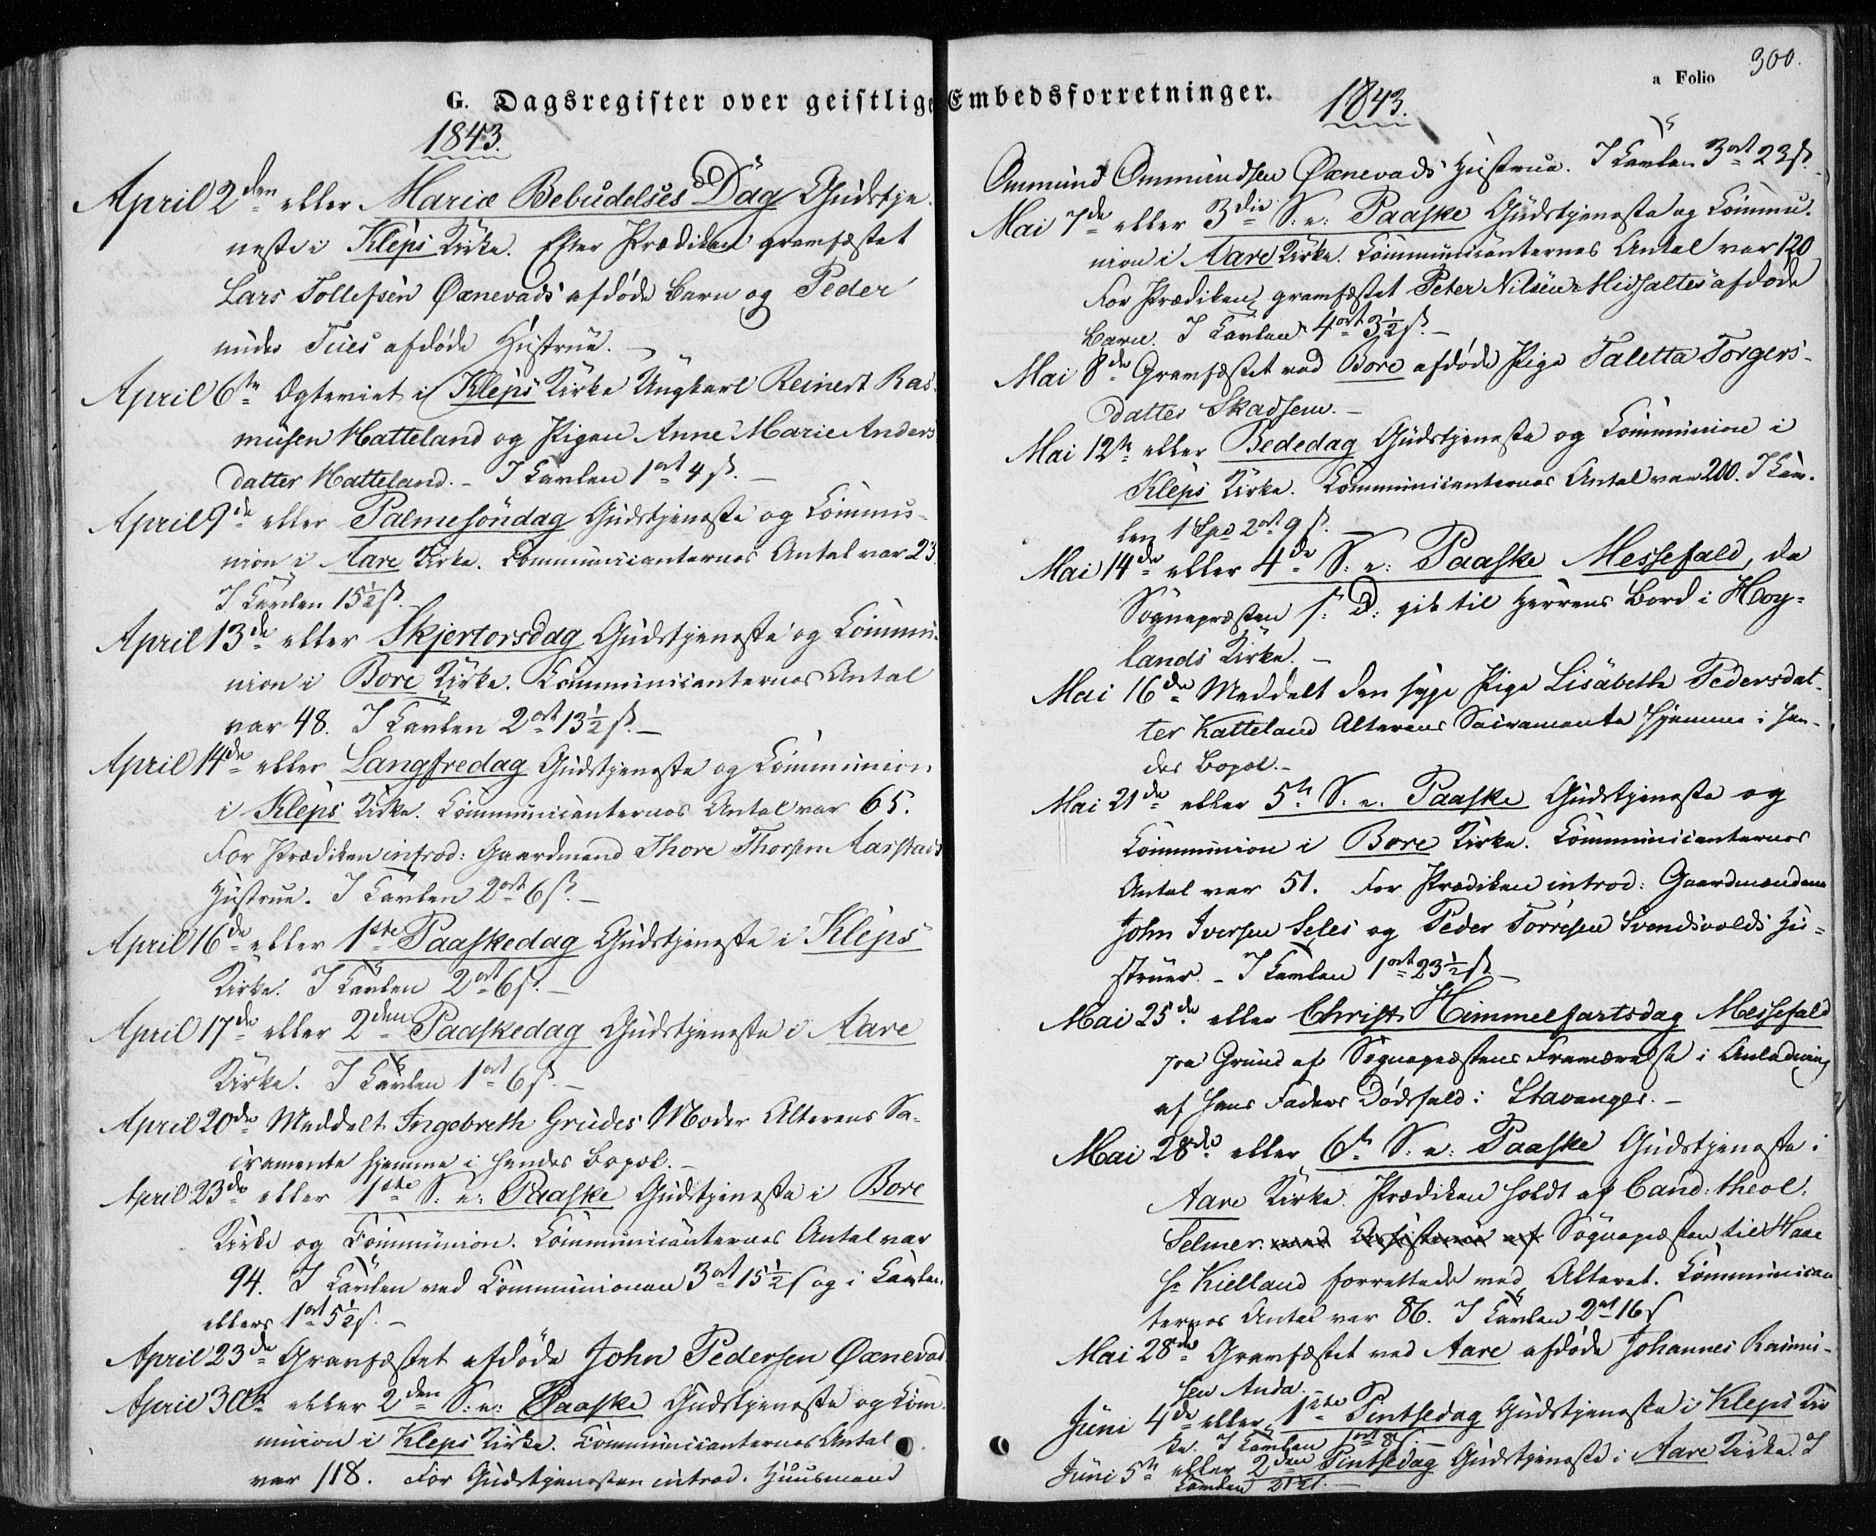 G. Dagsregister over geistlige Embedsforretninger.
a Folio 300.
1843.
April 2den eller Mariæ Bebudelses Dag Gudstje-
neste i Kleps Kirke. Efter Prædiken gravfæstet
Lars Tollefsen Øxnevads afdøde Barn og Peder
Tues afdøde Hustrue. –
April 6te Ægteviet i Kleps Kirke Ungkarl Reinert Ras-
musen Hatteland og Pigen Anne Marie Anders
datter Hatteland. – I Tavlen 1 ort 4 ß. –
April 9de eller Palmesöndag Gudstjeneste og Commu-
nion i Aare Kirke. Communicanternes Antal var 23
I Tavlen 15½ ß.
April 13de eller Skjertorsdag Gudstjeneste og Commu-
nion i Bore Kirke. Communicanternes Antal
var 48. I Tavlen 2 ort 13½ ß. –
April 14de eller Langfredag Gudstjeneste og Communion
i Kleps Kirke. Communicanternes Antal var 65.
For Prædiken introd: Gaardmand Thore Thorsen Aarstads
Hustrue. I Tavlen 2 ort 6 ß. –
April 16de eller 1ste Paaskedag Gudstjeneste i Kleps
Kirke. I Tavlen 2 ort 6 ß. –
April 17de eller 2den Paaskedag Gudstjeneste i Aare
Kirke. I Tavlen 1 ort 6 ß. –
April 20de Meddelt Ingebreth Grudes Moder Alterens Sa-
cramente hjemme i hendes Bopæl. –
April 23de eller 1ste S: e: Paaske Gudstjeneste i Bore
Kirke og Communion. Communicanternes Antal var
94. I Tavlen ved Communionen 3 ort 15½ ß og i Tavlen
ellers 1 ort 5½ ß. –
April 23de Gravfæstet afdøde John Pedersen Øxnevad
April 30te eller 2den S: e: Paaske Gudstjeneste og Com-
munion i Kleps Kirke. Communicanternes Antal
var 118. For Gudstjenesten introd. Huusmand
1843.
Ommund Ommundsen Øxnevads Hustrue. I Tavlen 3 ort 23 ß.
Mai 7de eller 3die S: e: Paaske Gudstjeneste og Commu-
nion i Aare Kirke. Communicanternes Antal var 120
For Prædiken gravfæstet Peter Nilsen Midsaltes afdøde
Barn. I Tavlen 4 ort 3½ ß. –
Mai 8de Gravfæstet ved Bore afdøde Pige Taletta Torgers-
datter Skadsem. –
Mai 12te eller Bededag Gudstjeneste og Communion i
Kleps Kirke. Communicanternes Antal var 200. I Tav-
len 1 Spd 2 ort 9 ß. –
Mai 14de eller 4de S: e: Paaske Messefald, da
Sognepræsten s: D: gik til Herrens Bord i Høy-
lands Kirke. –
Mai 16de Meddelt den syge Pige Lisabeth Pedersdat-
ter Hatteland Alterens Sacramente hjemme i hen-
des Bopæl. –
Mai 21de eller 5te S: e: Paaske Gudstjeneste og
Communion i Bore Kirke. Communicanternes
Antal var 51. For Prædiken introd: Gaardmændene
John Iversen Seles og Peder Torresen Svendsvolds Hu-
struer. – I Tavlen 1 ort 23½ ß –
Mai 25de eller Christi Himmelfartsdag Messefald
paa Grund af Sognepræstens Fraværelse i Anledning
af hans Faders Dødsfald i Stavanger. –
Mai 28de eller 6te S: e: Paaske Gudstjeneste i
Aare Kirke. Prædiken holdt af Cand: theol:
Selmer. med Assistence af Sognepræsten til Haae
Hr Kielland forrettede ved Alteret. Communican
ternes Antal var 86. I Tavlen 2 ort 16 ß
Mai 28de Gravfæstet ved Aare afdøde Johannes Rasmu-
sen Anda.
Juni 4de eller 1ste Pintsedag Gudstjeneste i Kleps Kir
ke. I Tavlen 1 ort 8 ß. –
Juni 5te eller 2den Pintsedag Gudstjeneste i Aare Kirke. I
Tavlen 21 ß. –